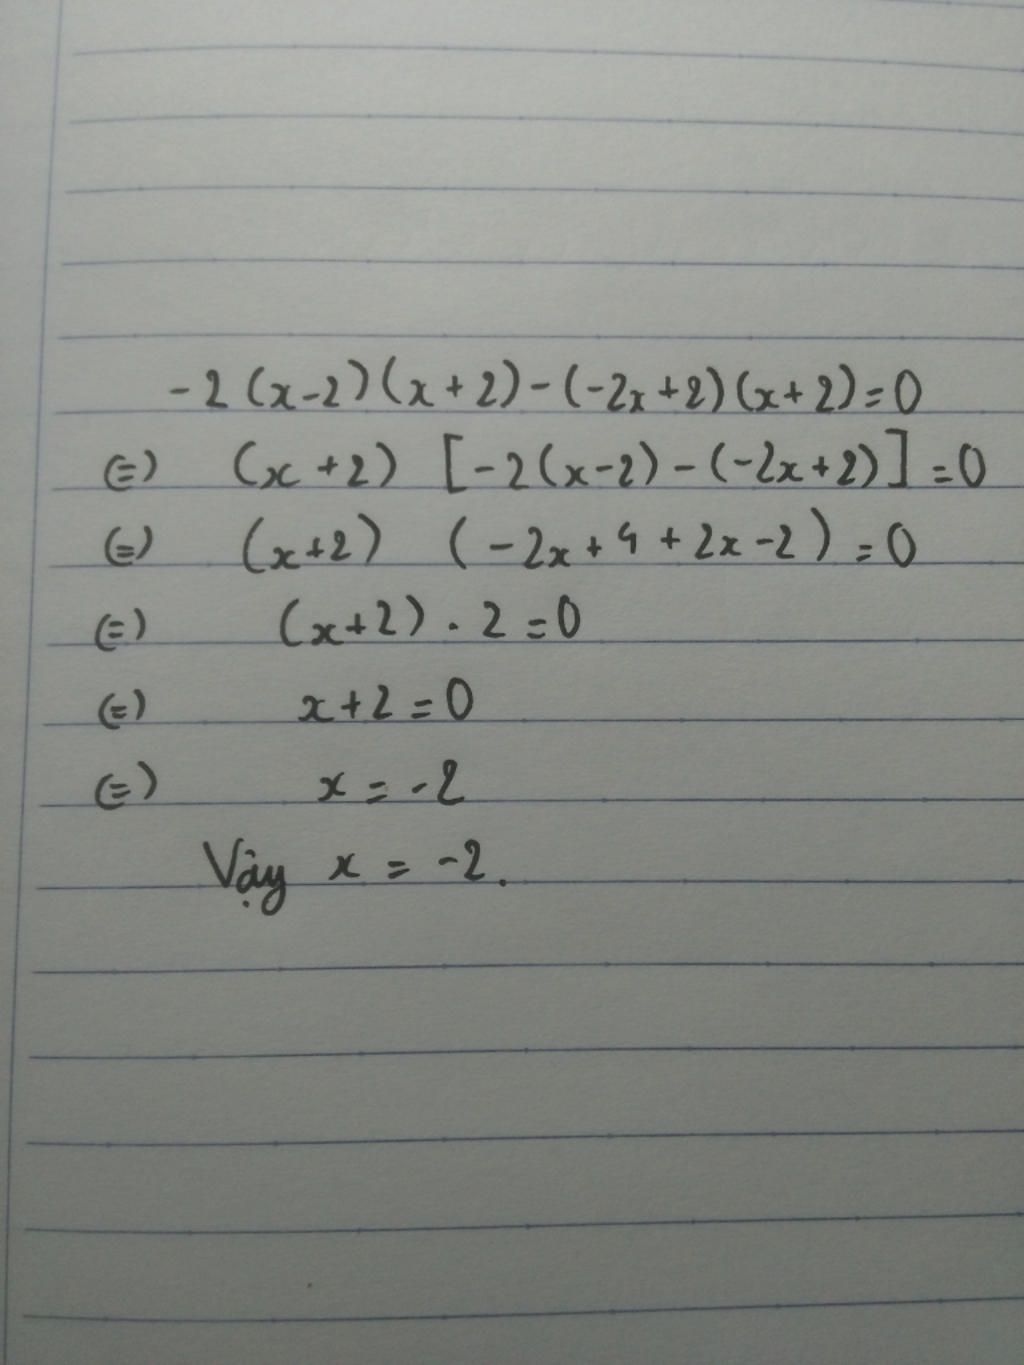 -2(x-2)(x+2)-(-2x+2)(x+2)=0
(=) (x+2) [-2(x-2)-(-2x+2)]=0
(=) (x+2) (-2x+4+2x-2)=0
(=) (x+2).2=0
(=) x+2=0
(=) x=-2
Vậy x=-2.